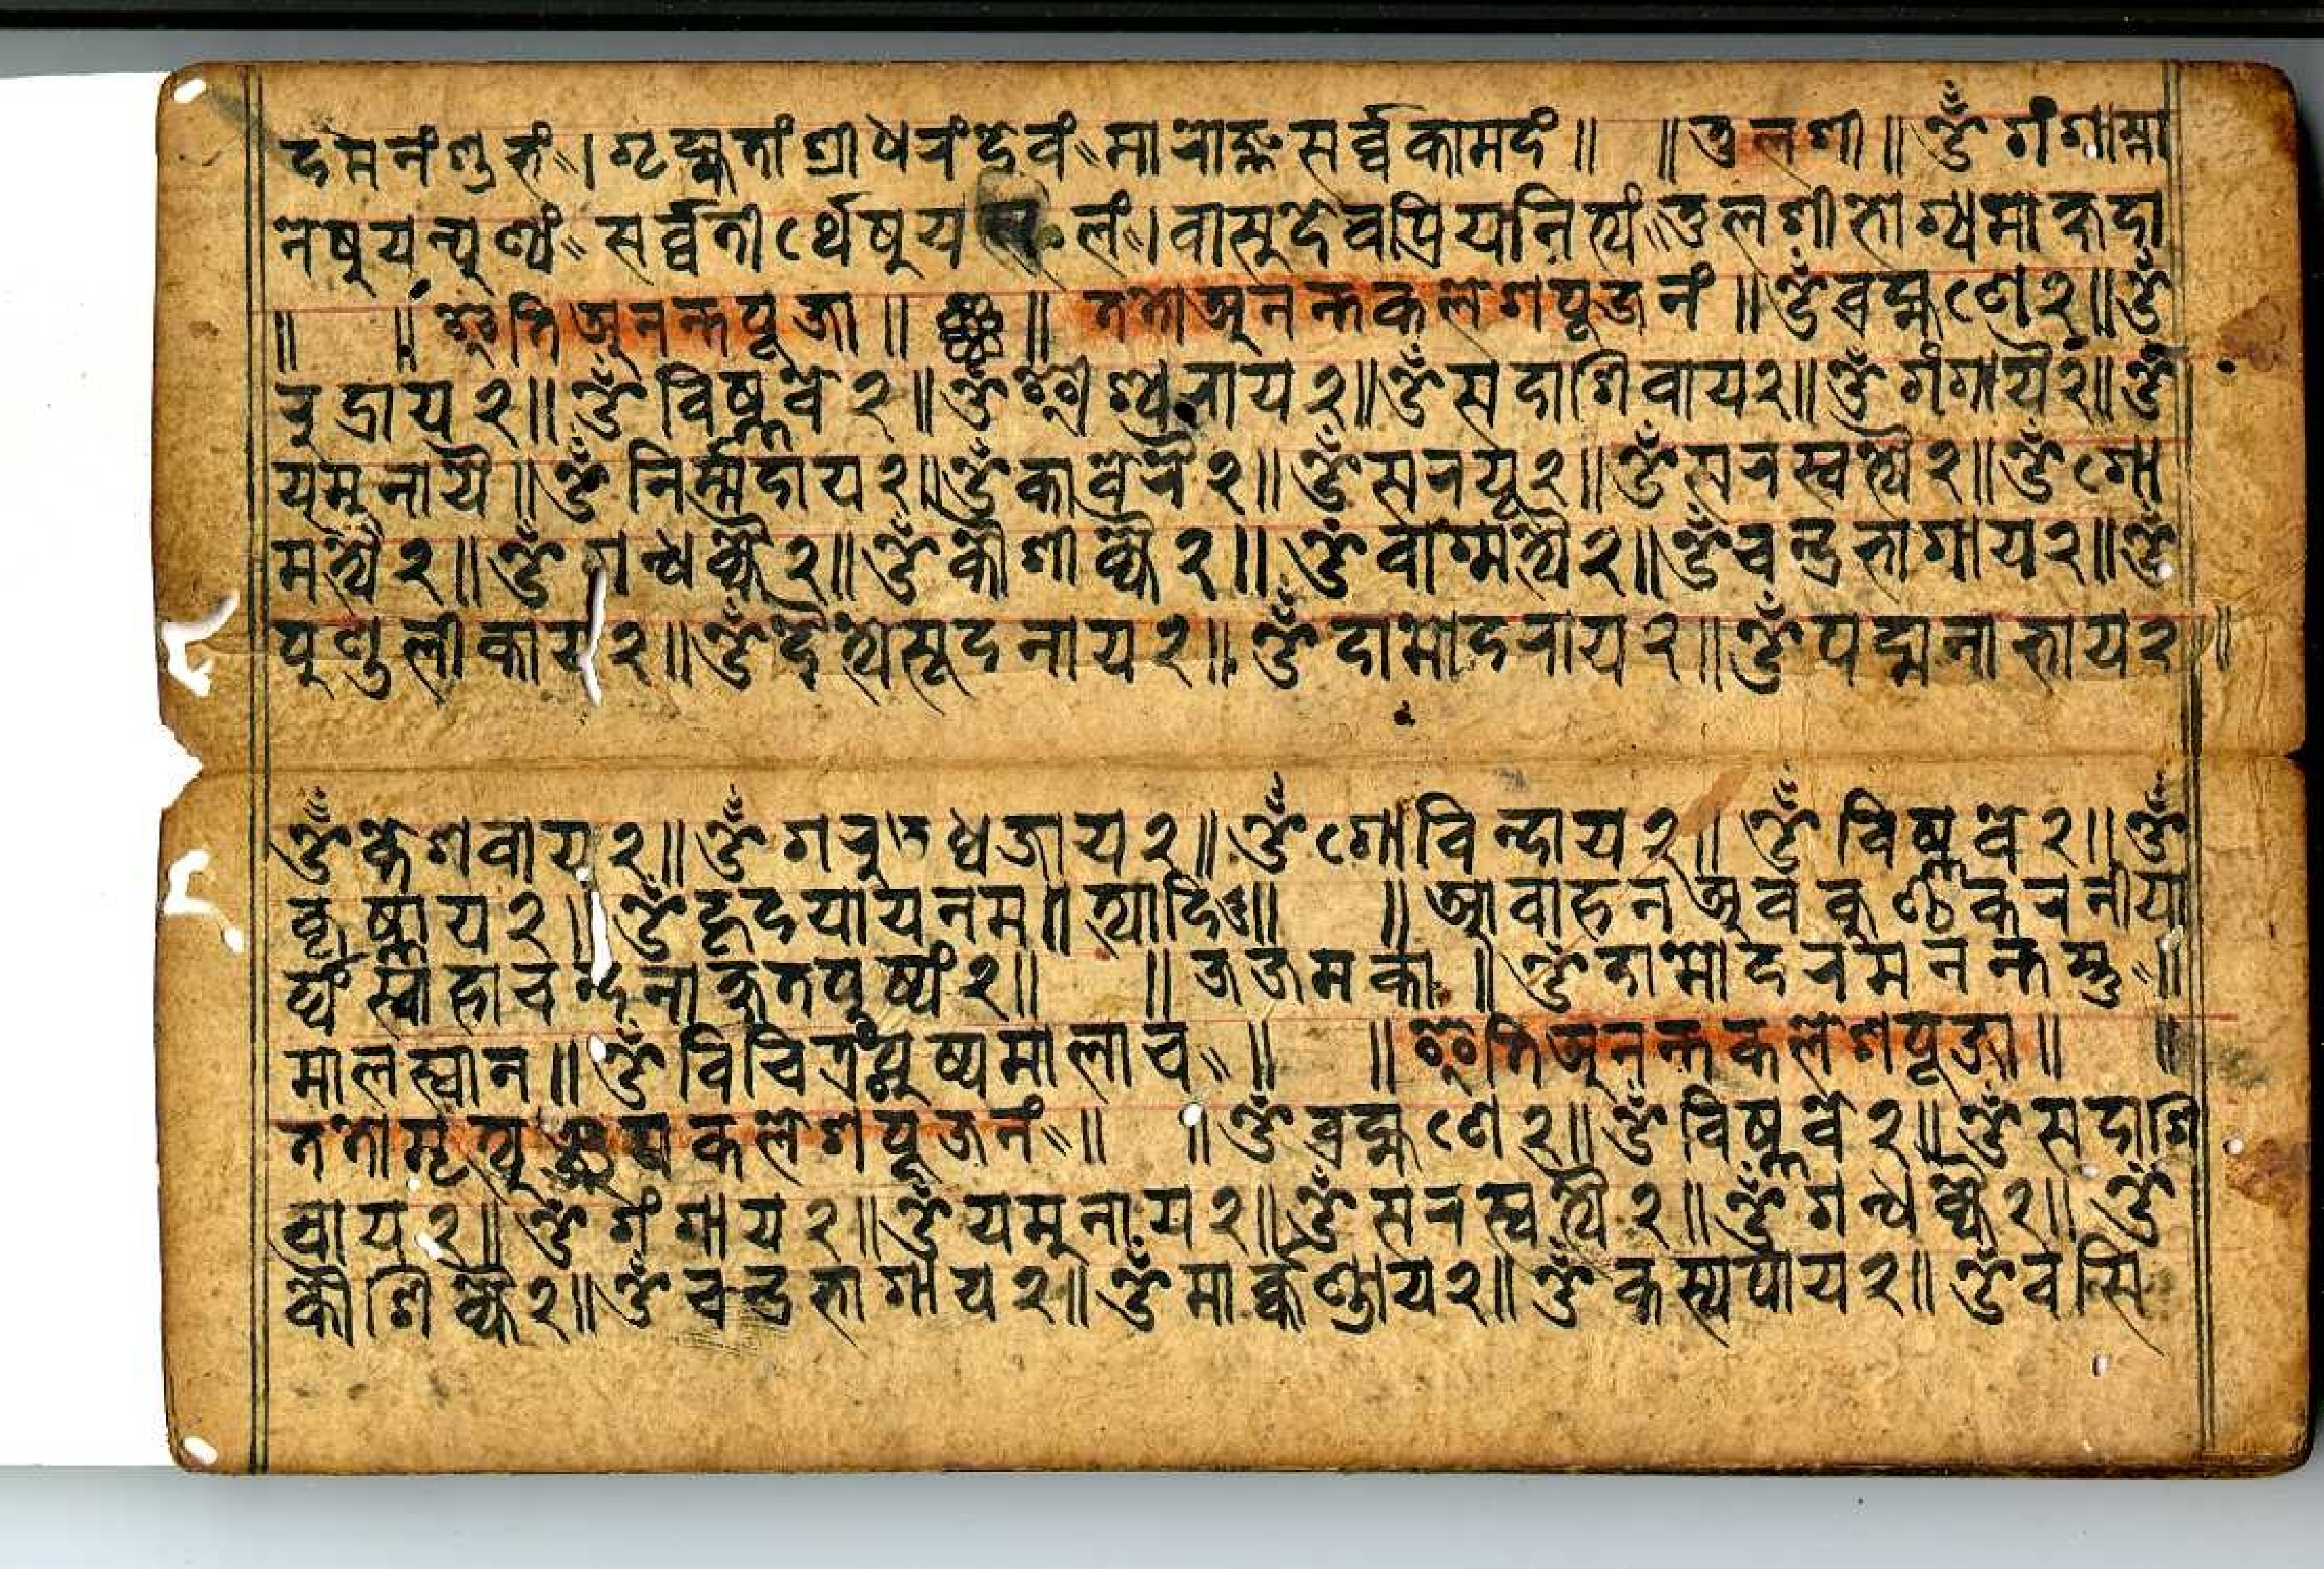 दमनंशुभं॥।गृह्यतांश्रीधरंदेवं॥मारोङ्गसर्व्वकामदं॥ ॥तुलशी॥ॐ गंगास्ना
नेषुयत्पुण्यं॥सर्व्वतीर्थेषुयत्फलं॥।वासुदेवप्रियनित्यं॥तुलशीभोग्यमोक्षदा
॥ ॥इतिअनन्तपूजा॥ ॥ततोअनन्तकलशपूजनं॥ॐब्रह्मणे२॥ॐ
रुद्राय२॥ॐविष्णवे२॥ॐईश्वराय२॥ॐसदाशिवाय२॥ॐगंगायै२॥ॐ
यमुनायै॥ॐनिर्म्मदाय२॥ॐकावेरै२॥ॐसरयू२॥ॐसरस्वत्यै२॥ॐगो
मत्यै२॥ॐगन्धक्यै२॥ॐकौशीक्यै२॥ॐवाग्मत्यै२॥ॐचन्द्रभागाय२॥ॐ
पुण्डलीकाय२॥ॐदैत्यसूदनाय२॥ॐदामोदराय२॥ॐपद्मनाभाय२॥
ॐकेशवाय२॥ॐगरुडध्वजाय२॥ॐगोविन्दाय२॥ॐविष्णवे२॥ॐ
कृष्णाय२॥ॐहृदयायनम॥त्यादि॥ ॥आवाहनअवकुण्ठकरनीया
र्घ्यंस्वाहाचन्दनाक्षतपुष्यं२॥ ॥जजमका॥ॐदामोदरमनन्तस्तु॥॥
मालस्वान॥ॐविचित्रंपुष्यमालाच॥॥ ॥इतिअनन्तकलशपूजा॥ ॥
ततोमृत्युञ्जयकलशपूजनं॥॥ ॥ॐब्रह्मणे२॥ॐविष्णवे२॥ॐसदाशि
वाय२॥ॐगंगाय२॥ॐयमुनाय२॥ॐसरस्वत्यै२॥ॐगन्धक्यै२॥ॐ
कौशिक्यै२॥ॐचन्द्रभागाय२॥ॐमार्कण्डाय२॥ॐकस्यपाय२॥ॐवसि